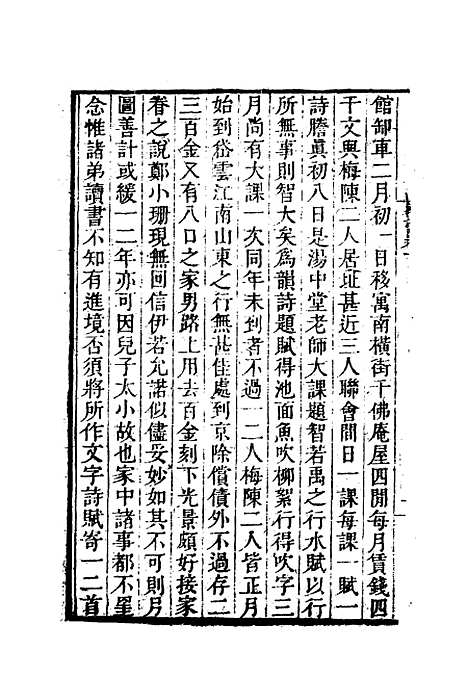 館卸車二月初一日移寓南橫街千佛庵屋四間每月賃錢四
千文與梅陳二人居址甚近三人聯會間日一課每課一賦一
詩謄眞初八日是湯中堂老師大課題智若禹之行水賦以行
所無事則智大矣爲韻詩題賦得池面魚吹柳絮行得吹字三
月尚有大課一次同年未到者不過一二人梅陳二人皆正月
始到岱雲江南山東之行無甚佳處到京除償債外不過存二
三百金又有八口之家男路上用去百金刻下光景頗好接家
眷之說鄭小珊現無回信伊若允諾似儘妥妙如其不可則另
圖善計或緩一二年亦可因兒子太小故也家中諸事都不罣
念惟諸弟讀書不知有進境否須將所作文字詩賦寄一二首